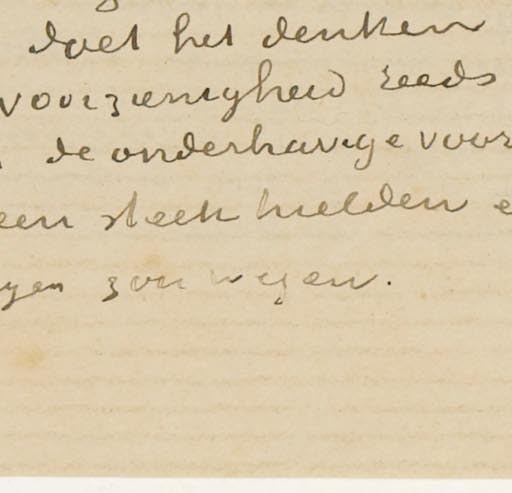 doet het denken
voorzienigheid reeds
de onderhavige voor
een steek hielden e
gen zou wegen.